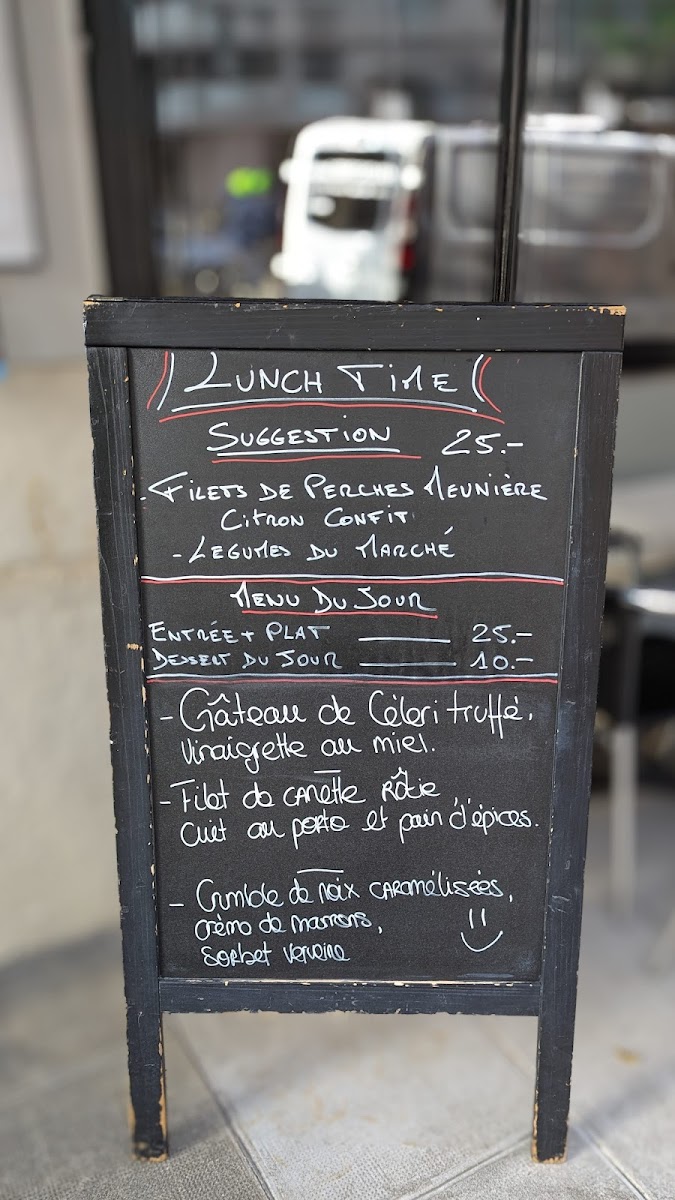 LUNCH TIME
SUGGESTION 25.-
- FILETS DE PERCHES MEUNIÈRE
CITRON CONFIT
- LEGUMES DU MARCHÉ
MENU DU JOUR
ENTRÉE + PLAT 25.-
DESSERT DU JOUR 10.-
- Gâteau de Céleri truffé,
Vinaigrette au miel.
- Filet de canette Rôtie
Cuit au porto et pain d'épices.
- Crumble de noix caramélisées,
crème de marrons,
Sorbet Verveine